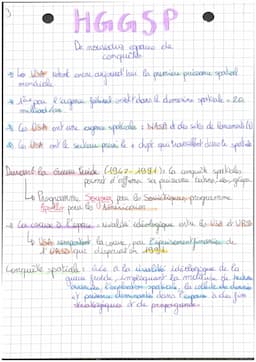 HGGSP
De nouveaux espaces de
conquête
Les USA sont encore aujourd'hui la première puissance spatiale
mondiale
1ère pour l'argent fédéral investi dans le domaine spatiale = 20
milliards
Les USA ont une agence spatiale : NASA et des sites de lancement (6)
Les USA ont le secteur privé le + dvpt qui travaillent dans le spatial
Durant la Guerre Froide (1947-1991) : la conquête spatiale
permet d'affirmer sa puissance
Programme Soyouz pour les Soviétiques, programme
pour les Américains
La course à l'espace : rivalité idéologique entre les USA et URSS
USA remportent la course, par l'épuisement financier de
l'URSS qui disparaît en 1991
Conquête spatiale : liée à la rivalité idéologique de la
guerre froide, impliquant la maîtrise de
l'exploration spatiale, la collecte de données
et présence dominante dans l'espace à des fins
stratégiques et de propagande.